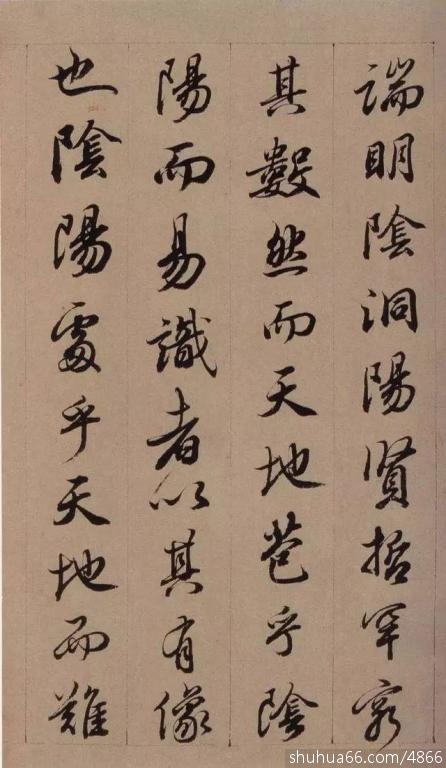 諯明陰洞陽賢哲罕窮
其數然而天地苞乎陰
陽而易識者以其有像
也陰陽處乎天地而難
shuhua66.com/4866